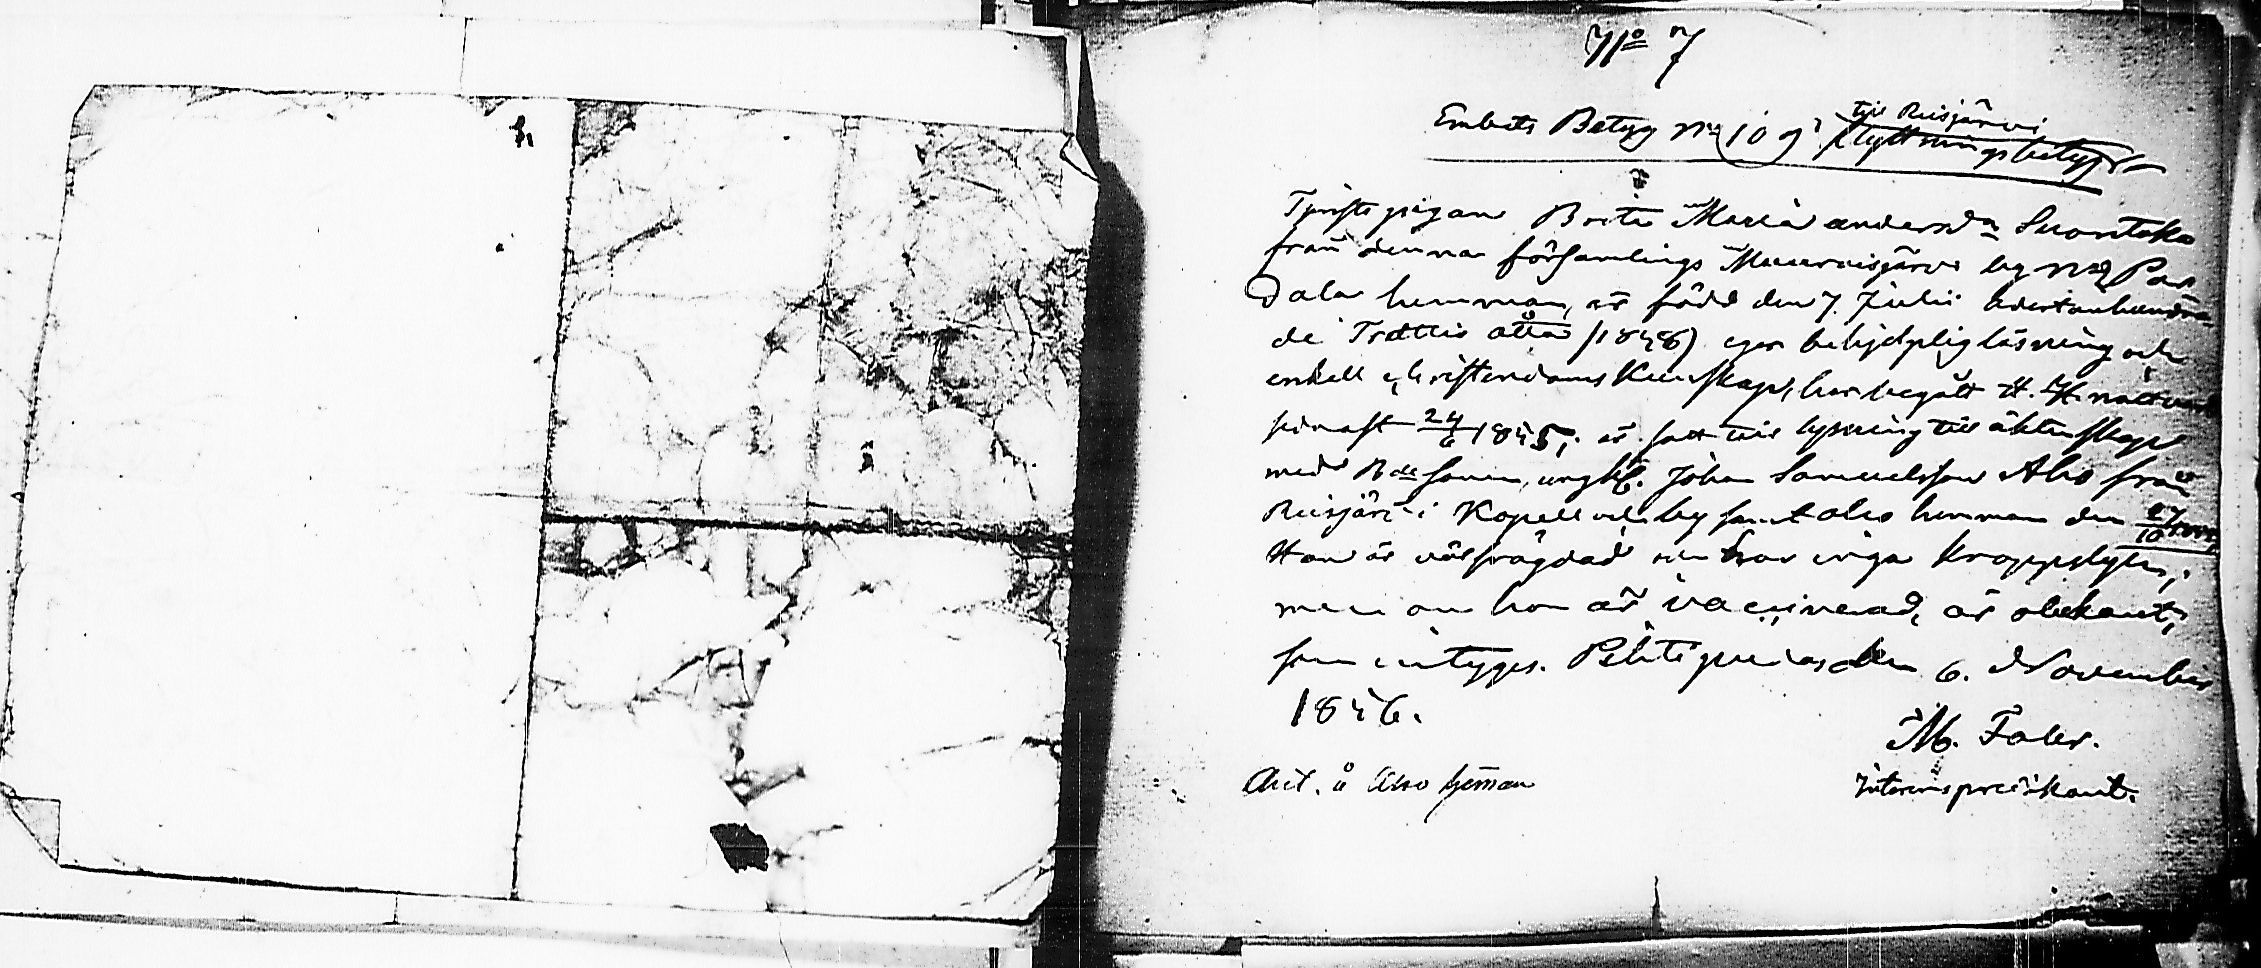 No 7
Embets Betyg No 109 till Reisjärvi flyttningsbetyg
Tjenste pigan Brita Maria andersdr Suontaka
från denna församlings Muurasjärvi by No 9
dala hemman, är född den 7. Julii adertonhundra
de Trettio åtta (1848) eger behjelplig läsning och
enkell christendoms Kunskap, har begått H. H. nattvard
sednast 24/6 1845; är satt till lysning till äktenskap
med Bde sonen, ungk. Johan Samuelsson Aho från
Reisjärvi Kapell och by samt aho hemman den 27/10
Hon är välfrägdad och har inga kroppslyten;
men om hon är vaccinerad, är obekant,
som intygges. Pihtipudas den 6. November
1846.
M. Faler.
Ank. å Aho heman
Interimspredikant.